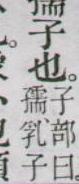 孺子也。
子部曰
孺乳子